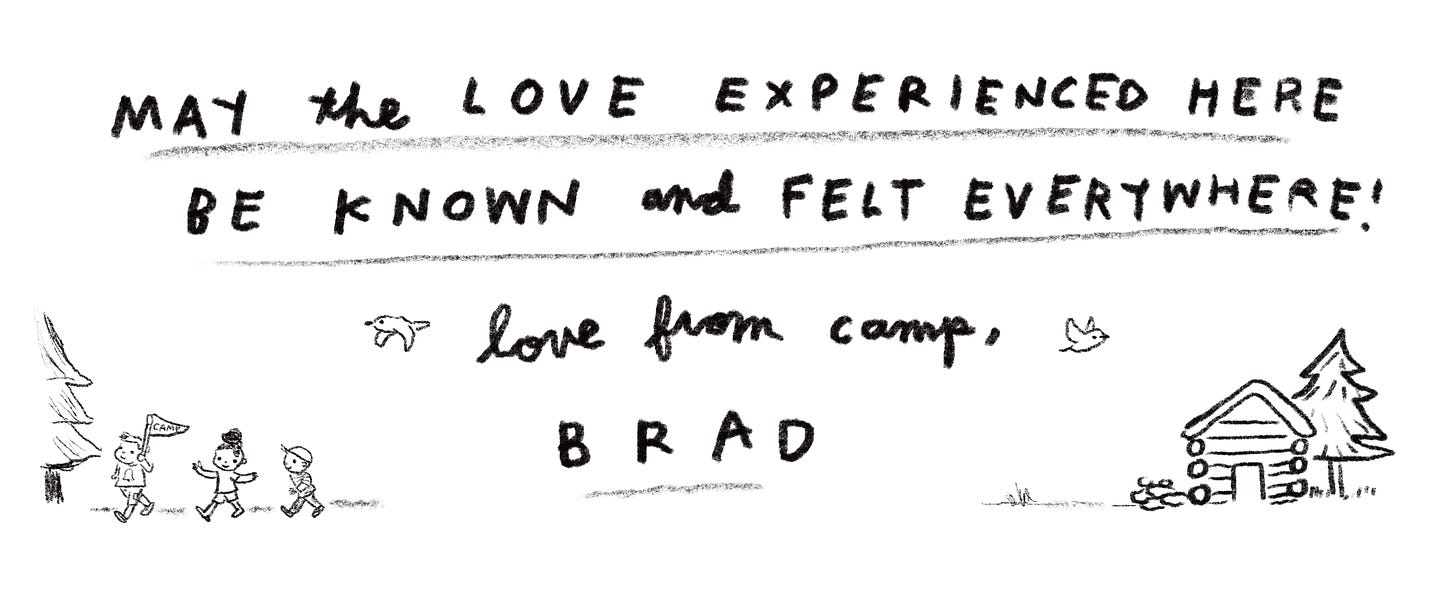 MAY the LOVE EXPERIENCED HERE
BE KNOWN and FELT EVERYWHERE!
love from camp,
BRAD
CAMP